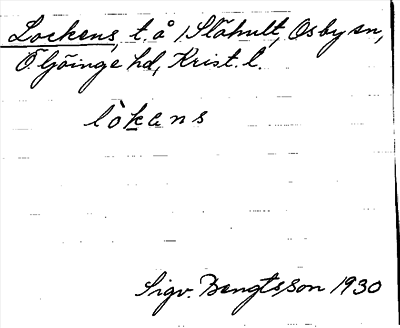 Lockens, t. å /Slähult, Osby sn,
Ö Göinge hd, Krist. l.
lòkans
Sigv. Bengtsson 1930